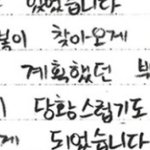 있었습니다
찾아오게
계획했던
당황스럽기도
되었습니다